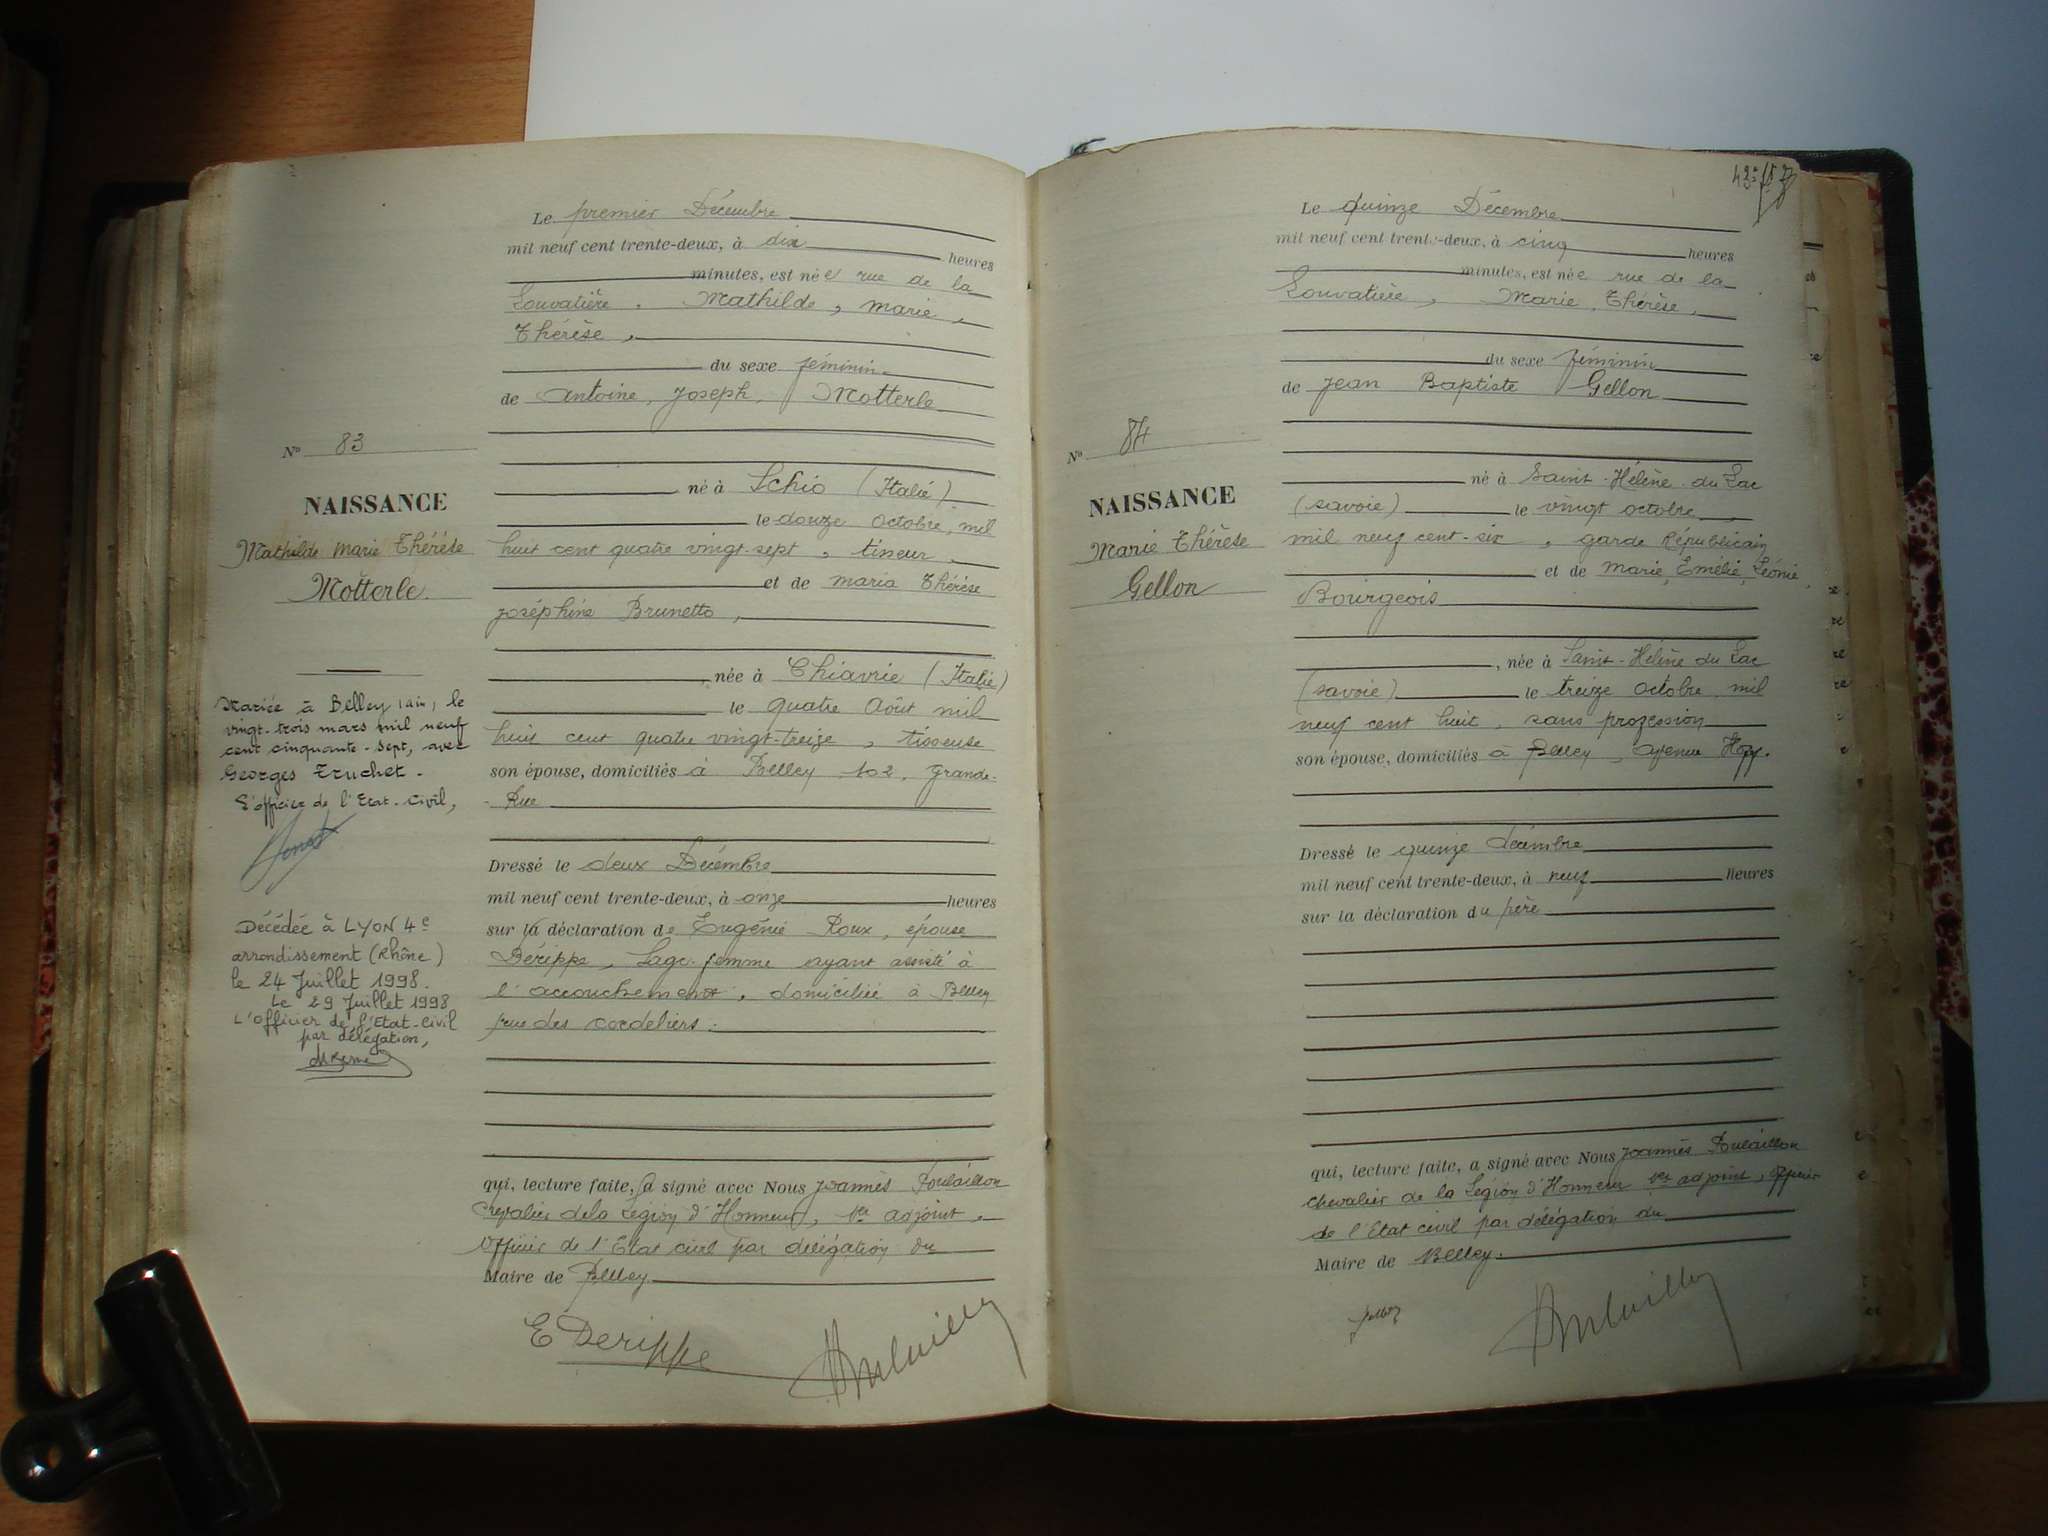 Le premier Décembre
mil neuf cent trente-deux, à dix heures
minutes, est née rue de la
Louvatière. Mathilde, marie,
Thérèse,
du sexe féminin
de Antoine, Joseph, Motterle
né à Schio (Italie)
le douze octobre, mil
huit cent quatre vingt-sept, tisseur,
et de maria Thérèse
Joséphine Brunetto,
née à Chiavrie (Italie)
le quatre Août mil
huit cent quatre vingt-treize, tisseuse
son épouse, domiciliés à Belley 102, Grande-
-Rue
Dressé le deux Décembre
mil neuf cent trente-deux, à onze heures
sur la déclaration de Eugénie Roux, épouse
Dérippe, Sage-femme ayant assisté à
l'accouchement, domiciliée à Belley
rue des cordeliers.
qui, lecture faite, a signé avec Nous Joannès
Chevalier de la Légion d'Honneur, 1er adjoint,
Officier de l'Etat civil par délégation du
Maire de Belley
E Derippe
N° 83
NAISSANCE
Mathilde Marie Thérèse
Motterle
Mariée à Belley (Ain) le
vingt-trois mars mil neuf
cent cinquante-sept, avec
Georges Truchet.
L'officier de l'Etat-Civil,
Décédée à LYON 4e
arrondissement (Rhône)
le 24 Juillet 1998.
Le 29 Juillet 1998
L'Officier de l'Etat-Civil
par délégation,
Le quinze Décembre
mil neuf cent trente-deux, à cinq heures
minutes, est née rue de la
Louvatière, Marie, Thérèse,
du sexe féminin
de Jean Baptiste Gellon
né à Saint-Hélène du Lac
(Savoie) le vingt octobre
mil neuf cent-six, garde Républicain
et de marie, Emélie, Léonie,
Bourgeois
, née à Saint-Hélène du Lac
(Savoie) le treize octobre mil
neuf cent huit, sans profession
son épouse, domiciliés à Belley, avenue Hoff.
Dressé le quinze décembre
mil neuf cent trente-deux, à neuf heures
sur la déclaration du père
qui, lecture faite, a signé avec Nous Joannès
Chevalier de la Légion d'Honneur 1er adjoint, officier
de l'Etat civil par délégation du
Maire de Belley.
N° 84
NAISSANCE
Marie Thérèse
Gellon